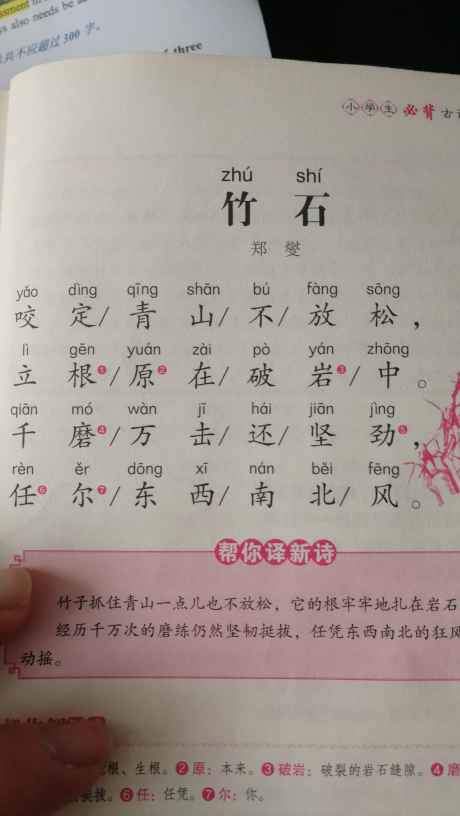 共不应超过 300 字。
three
小学生必背古
zhú shí
竹 石
郑 燮
yǎo dìng qīng shān bú fàng sōng
咬 定/ 青 山/ 不/ 放 松，
lì gēn yuán zài pò yán zhōng
立 根❶/ 原❷ 在/ 破 岩❸/ 中。
qiān mó wàn jī hái jiān jìng
千 磨❹/ 万 击/ 还/ 坚 劲❺，
rèn ěr dōng xī nán běi fēng
任❻ 尔❼/ 东 西/ 南 北/ 风。
帮你译新诗
竹子抓住青山一点儿也不放松，它的根牢牢地扎在岩石
经历千万次的磨练仍然坚韧挺拔，任凭东西南北的狂风
动摇。
根、生根。❷原：本来。❸破岩：破裂的岩石缝隙。❹磨
❻任：任凭。❼尔：你。